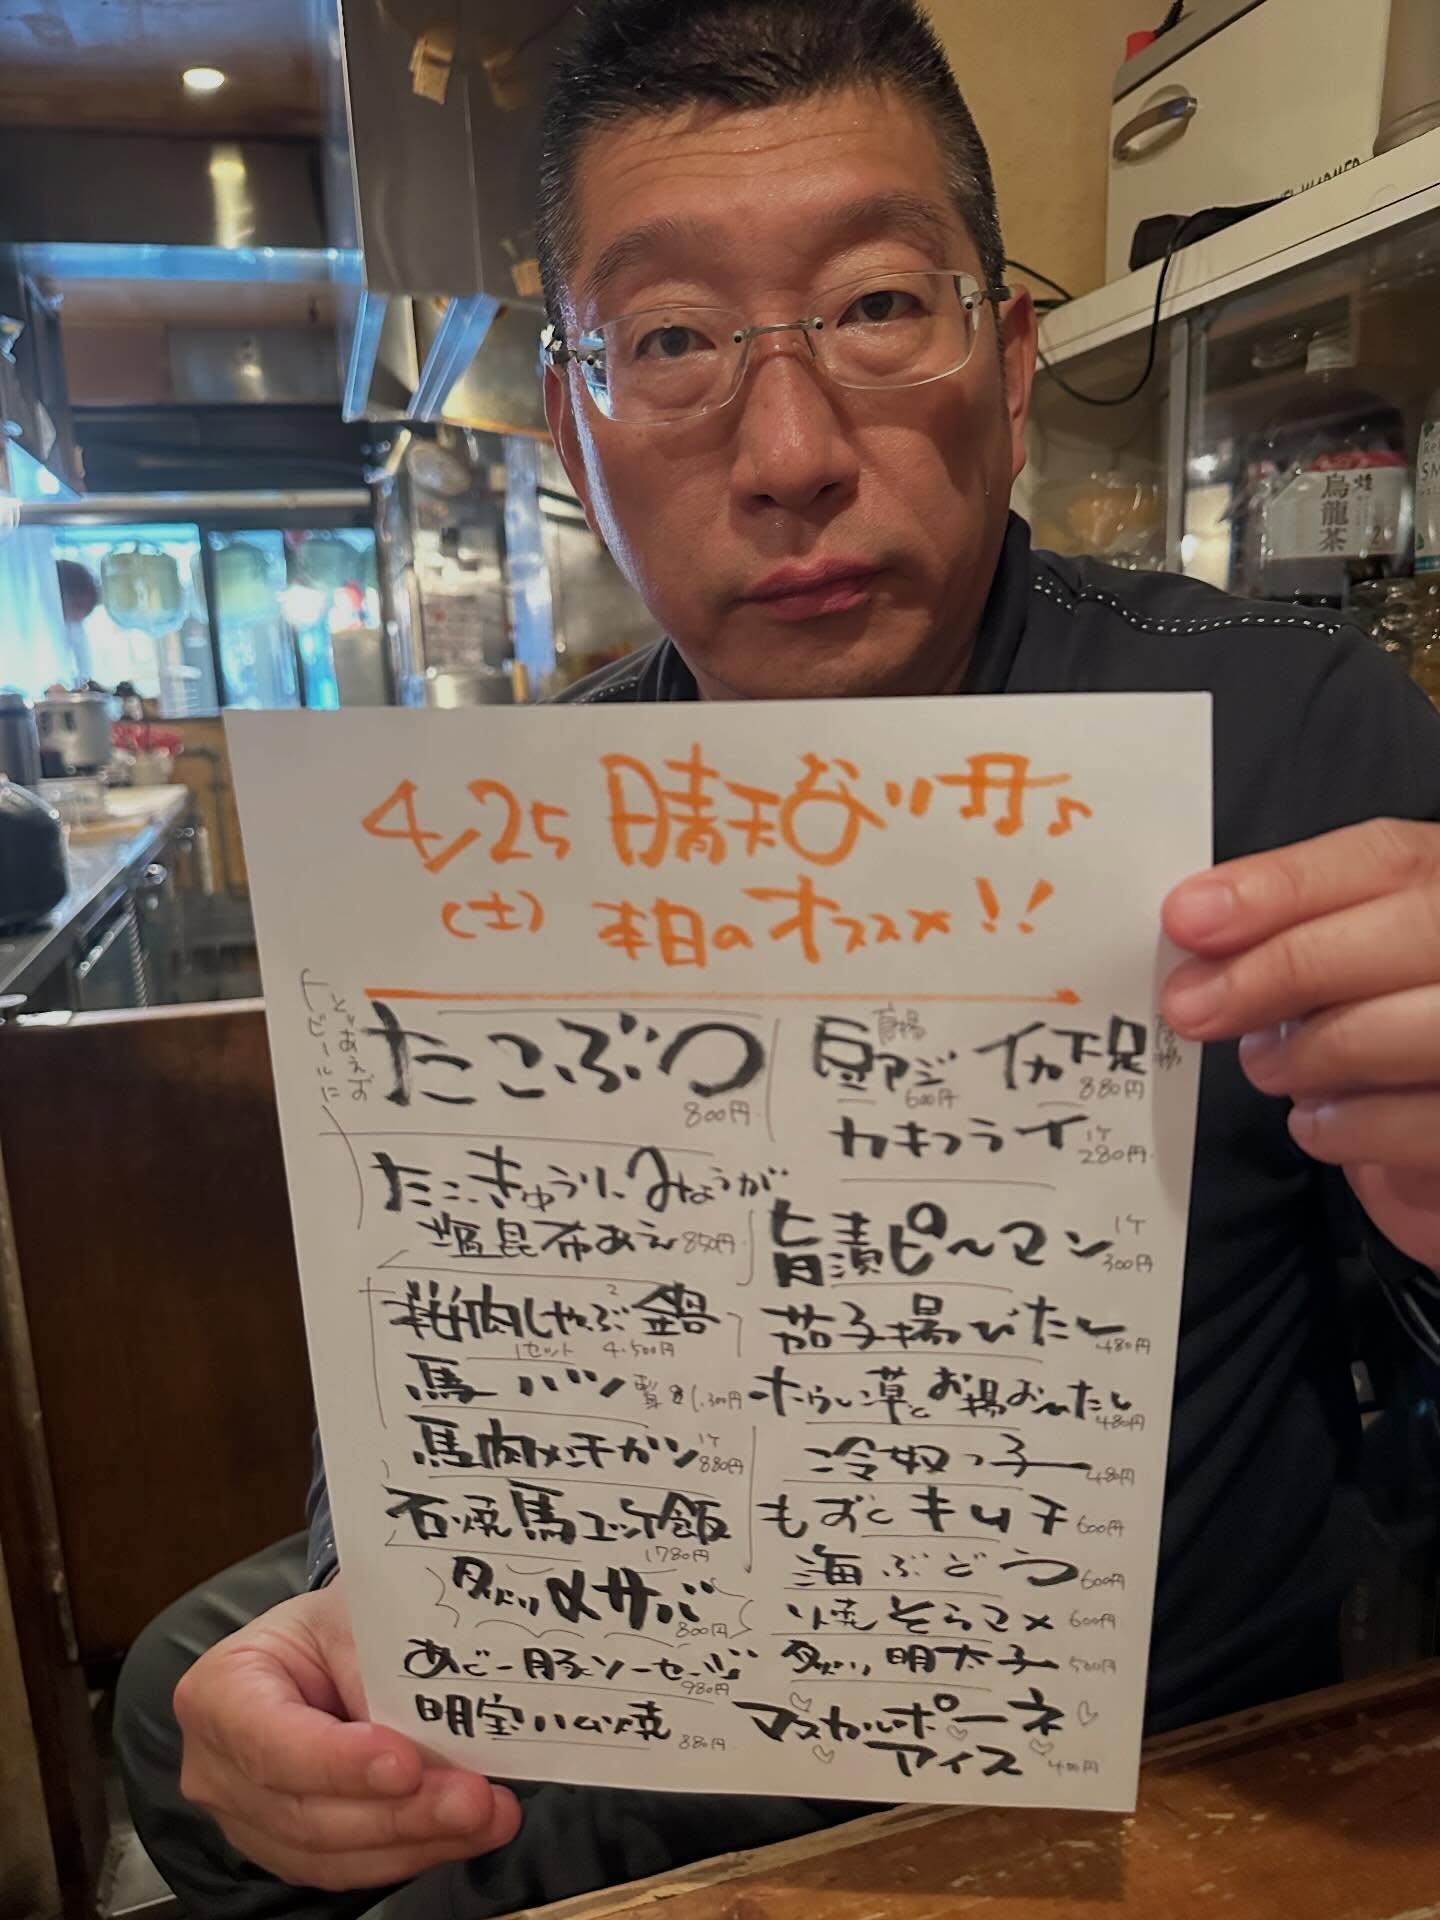 4/25 晴天なり♫♪
(土) 本日のオススメ!!
とりあえず
ビールに
たこぶつ
800円
豆アジ 唐揚
600円
イカ下足
880円
カキフライ 1ケ
280円
たこ、きゅうり、みょうが
塩昆布あえ 850円
肉漬ピーマン 1ケ
300円
桜肉しゃぶ鍋
1セット 4,500円
茄子揚びたし
480円
馬バソ 1,300円
ホウレン草とお揚おひたし
480円
馬肉メンチカツ 1ケ
880円
冷奴っ子
480円
石焼馬ユッケ飯
1780円
もずくキムチ 600円
海ぶどう 600円
〆サバ
800円
焼そらマメ 600円
あぐー豚ソーセージ
980円
明太子 500円
明宝ハム焼 880円
マスカルポーネ
アイス 400円
烏龍茶